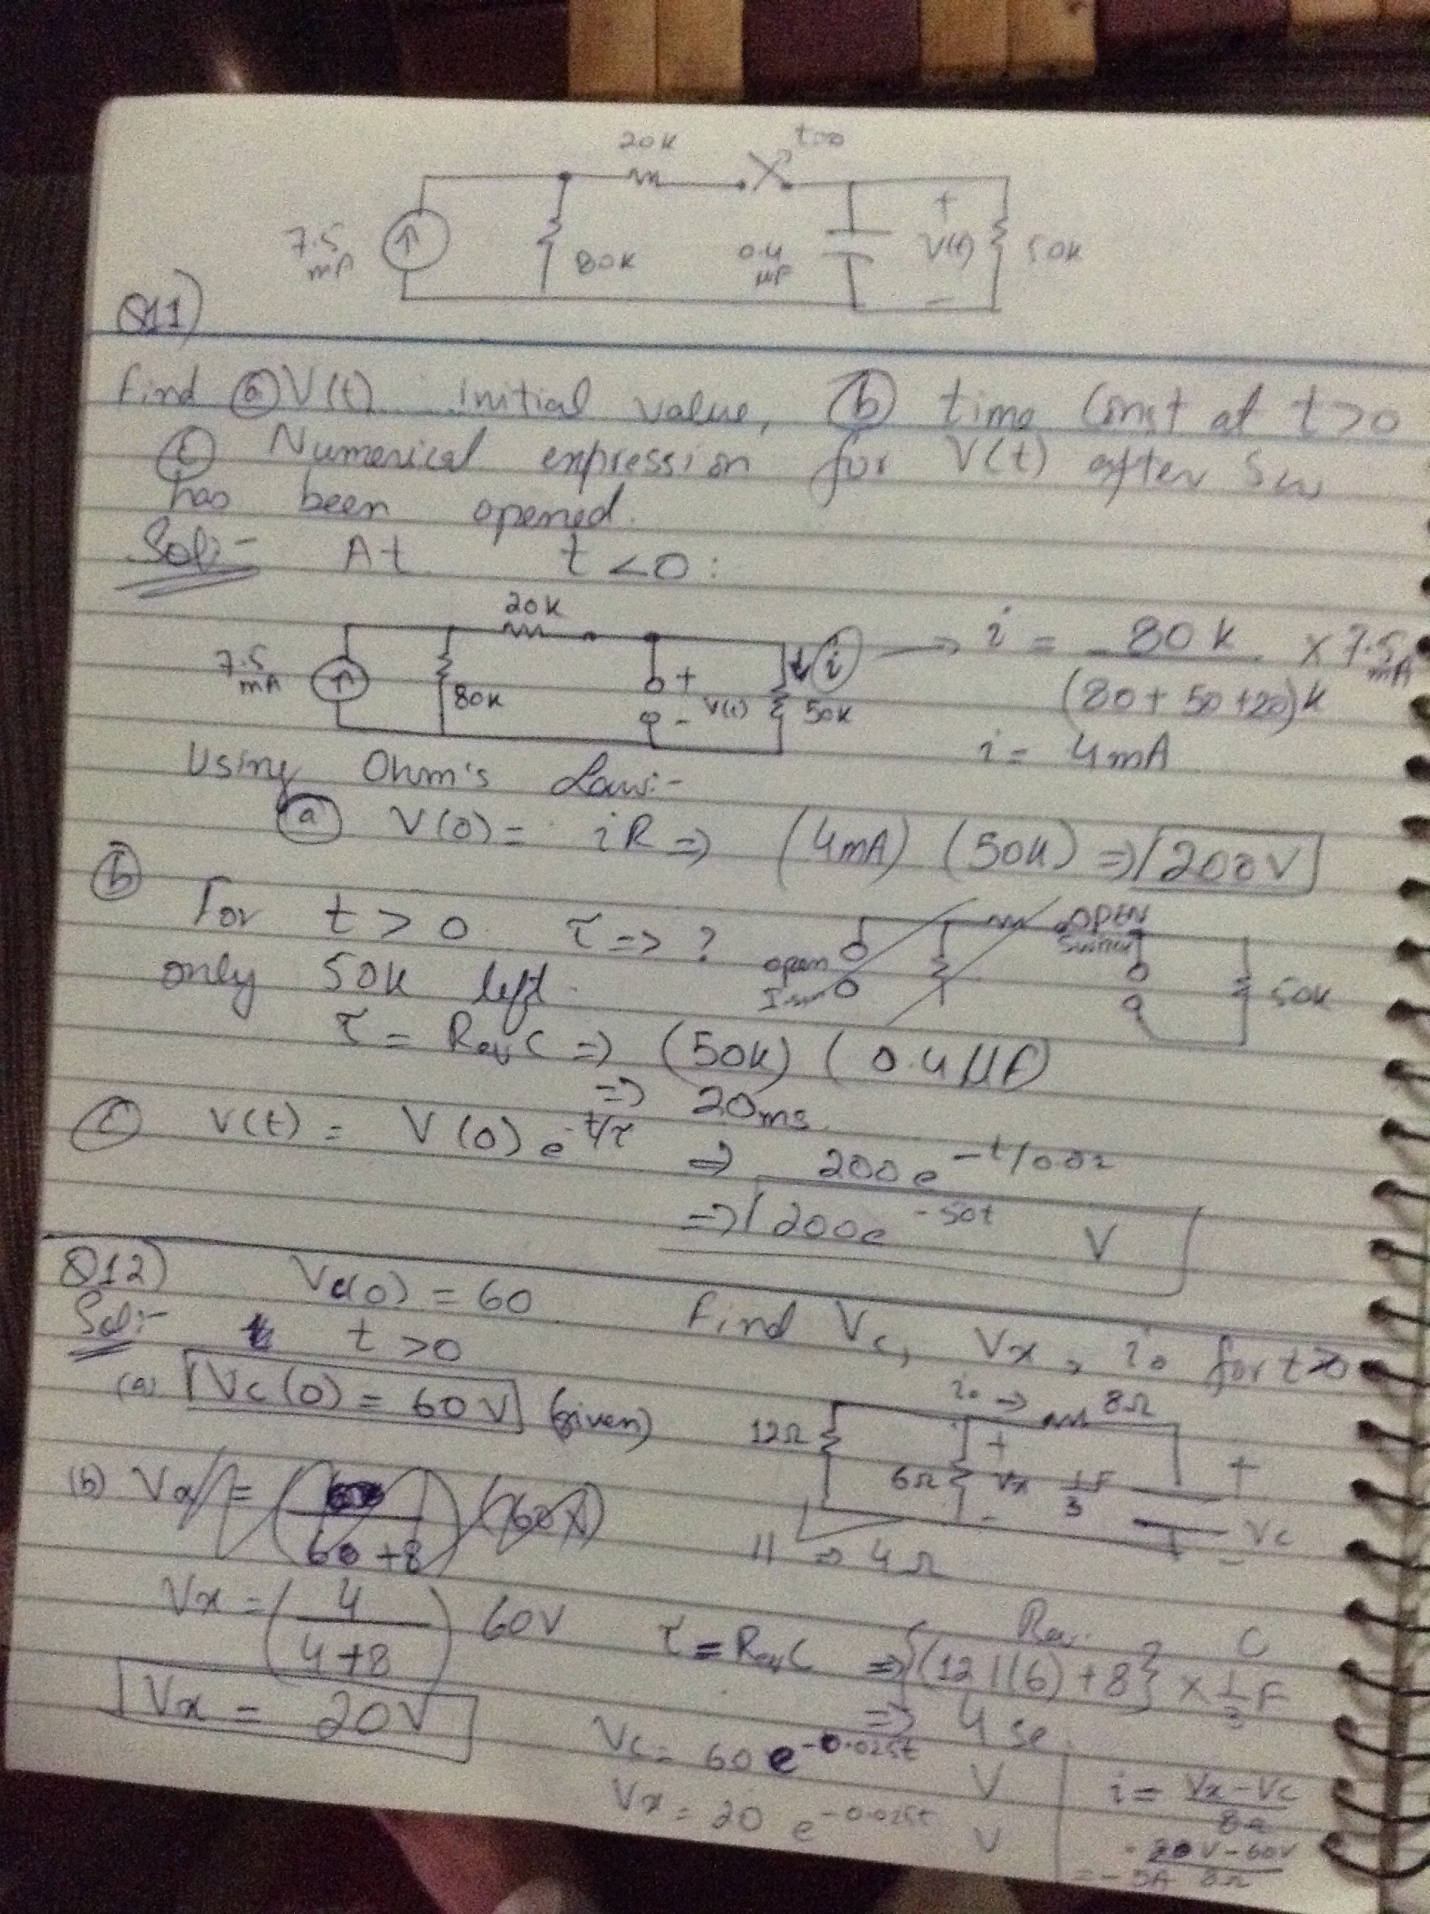 20K t=0
7.5 mA 80K 0.4 µF + V(t) - 50K
Q11)
Find ⓐ V(t) Initial value, ⓑ time Const at t>0
ⓒ Numerical expression for V(t) after Sw
has been opened.
Sol:- At t<0:
20K
7.5 mA 80K + V(t) - 50K i → i = 80K / (80+50+20)K × 7.5 mA
i = 4mA
Using Ohm's Law:-
ⓐ V(0) = iR => (4mA) (50K) => 200V
ⓑ For t>0 τ => ? open OPEN Switch
only 50K left. 50K
τ = Req C => (50K) (0.4 µF)
=> 20ms
ⓒ V(t) = V(0) e^-t/τ => 200e^-t/0.02
=> 200e^-50t V
Q12) Vc(0) = 60 Find Vc, Vx, io for t>0
Sol:- t>0
(a) Vc(0) = 60V (given) io → 8Ω
12Ω 6Ω + Vx - 1/3 F + Vc -
(b) Vx = ( / 60+8) (60V) || => 4Ω
Vx = (4 / 4+8) 60V
Req C
τ = Req C => {(12||6)+8} × 1/3 F
Vx = 20V => 4 se
Vc = 60 e^-0.025t V
Vx = 20 e^-0.025t V
i = Vx-Vc / 8Ω
= 20V-60V / 8Ω
= -5A